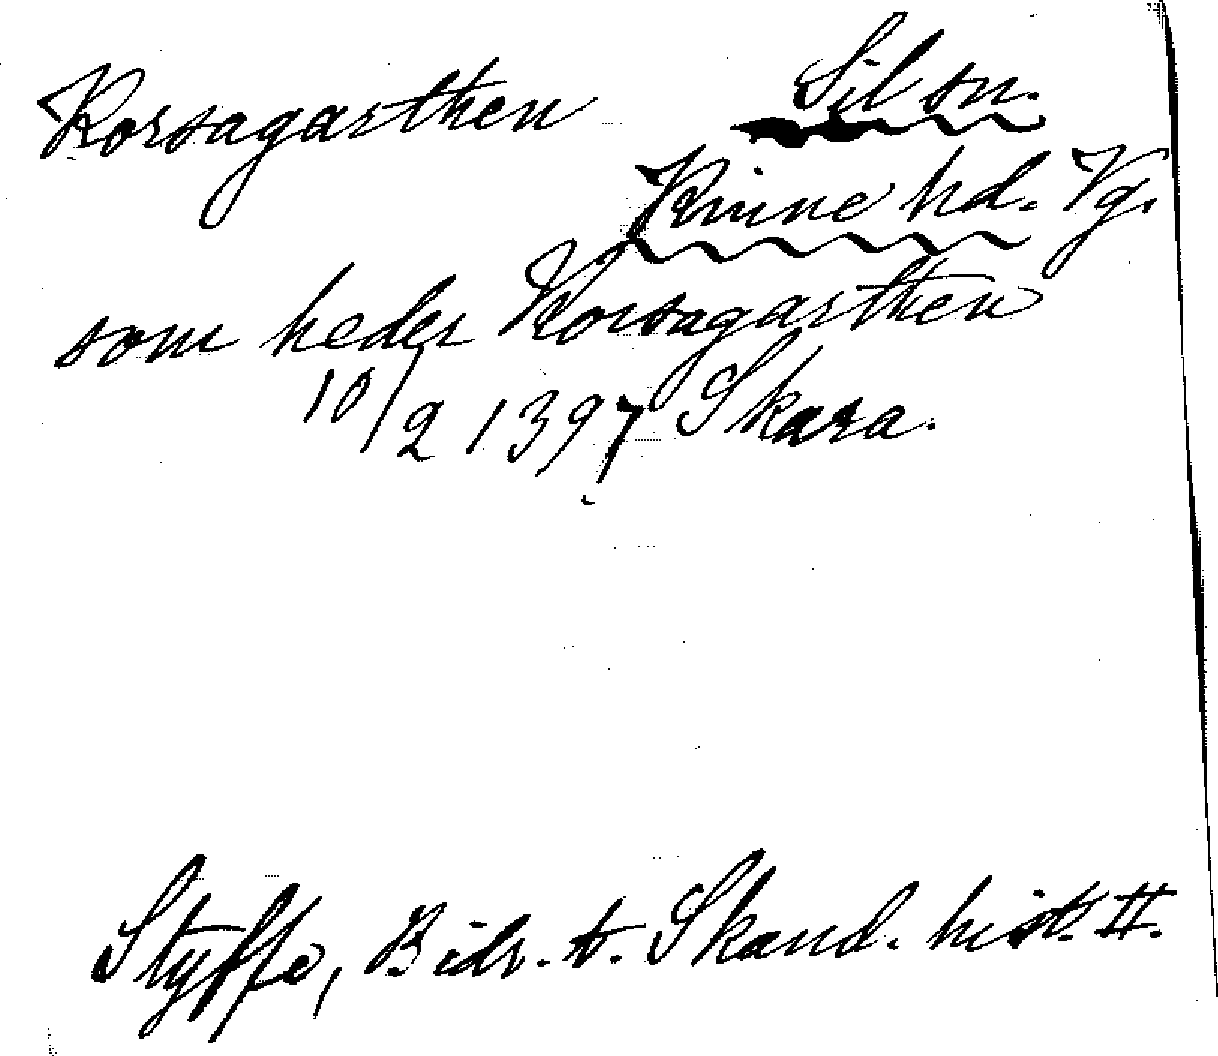 Korsagarthen Sil sn.
Kinne hd. Vg.
som heder Korsagarthen
10/2 1397 Skara.
Styffe, Bidr. t. Skand. hist. II.